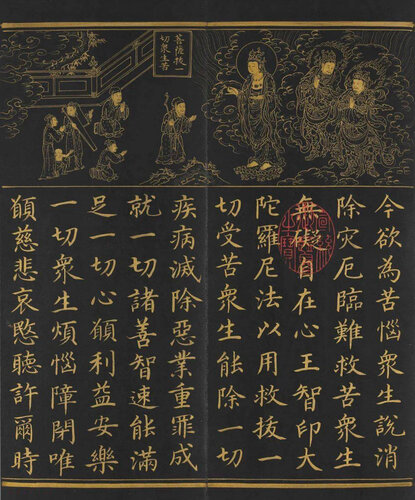 菩薩救一
切衆生苦
今欲為苦惱衆生說消
除灾厄臨難救苦衆生
無礙自在心王智印大
陀羅尼法以用救拔一
切受苦衆生能除一切
疾病滅除惡業重罪成
就一切諸善智速能滿
足一切心願利益安樂
一切衆生煩惱障閉唯
願慈悲哀愍聽許爾時